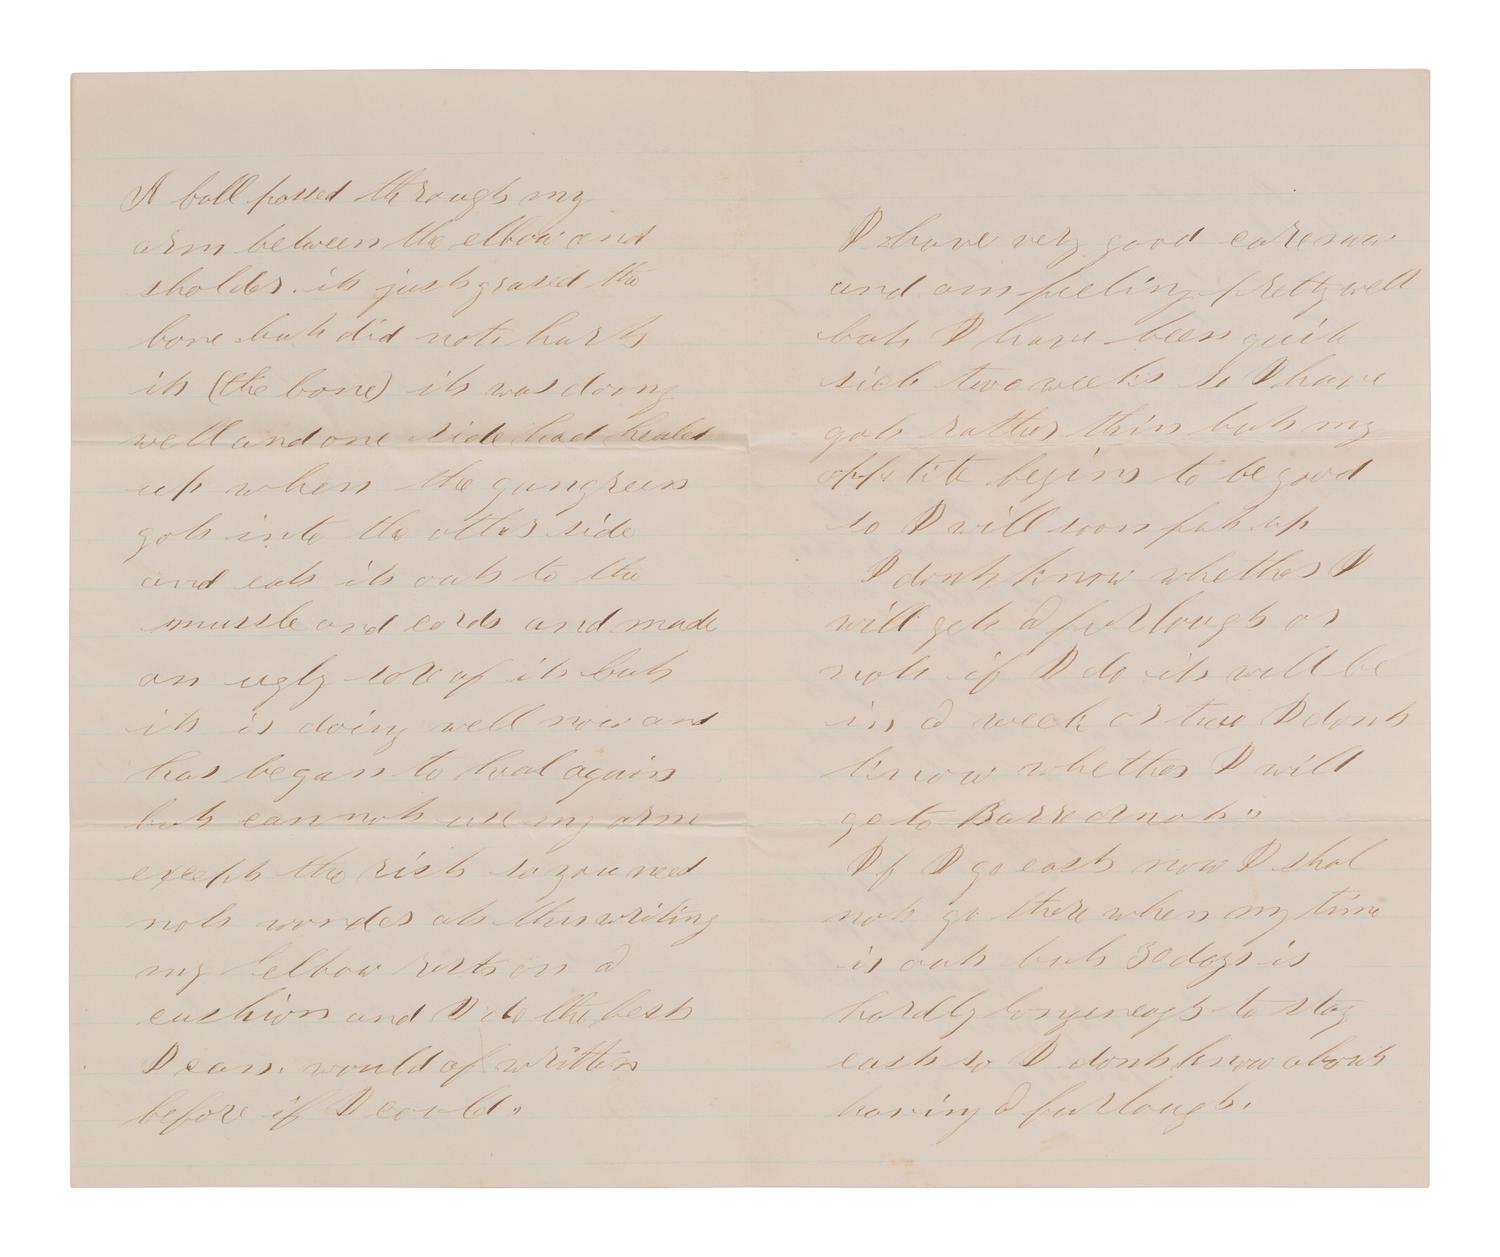 A ball passed through my
arm between the elbow and
sholder. it just grased the
bone but did not hurt
it (the bone) it was doing
well and one side had healed
up when the gangreen
got into the other side
and eat it out to the
mussle and cords and made
an ugly sore of it but
it is doing well now and
has began to heal again
but can not use my arm
except the rist so you need
not wonder at this writing
my elbow rests on a
cushion and I do the best
I can. would of written
before if I could.
I have very good care now
and am feeling pretty well
but I have been quite
sick two weeks so I have
got rather thin but my
appetite begins to be good
so I will soon fat up
I dont know whether I
will get a furlough or
not if I do it will be
in a week or two I dont
know whether I will
go to Barre or not"
If I go east now I shal
not go there when my time
is out but 30 days is
hardly long enough to stay
east so I dont know about
having a furlough.